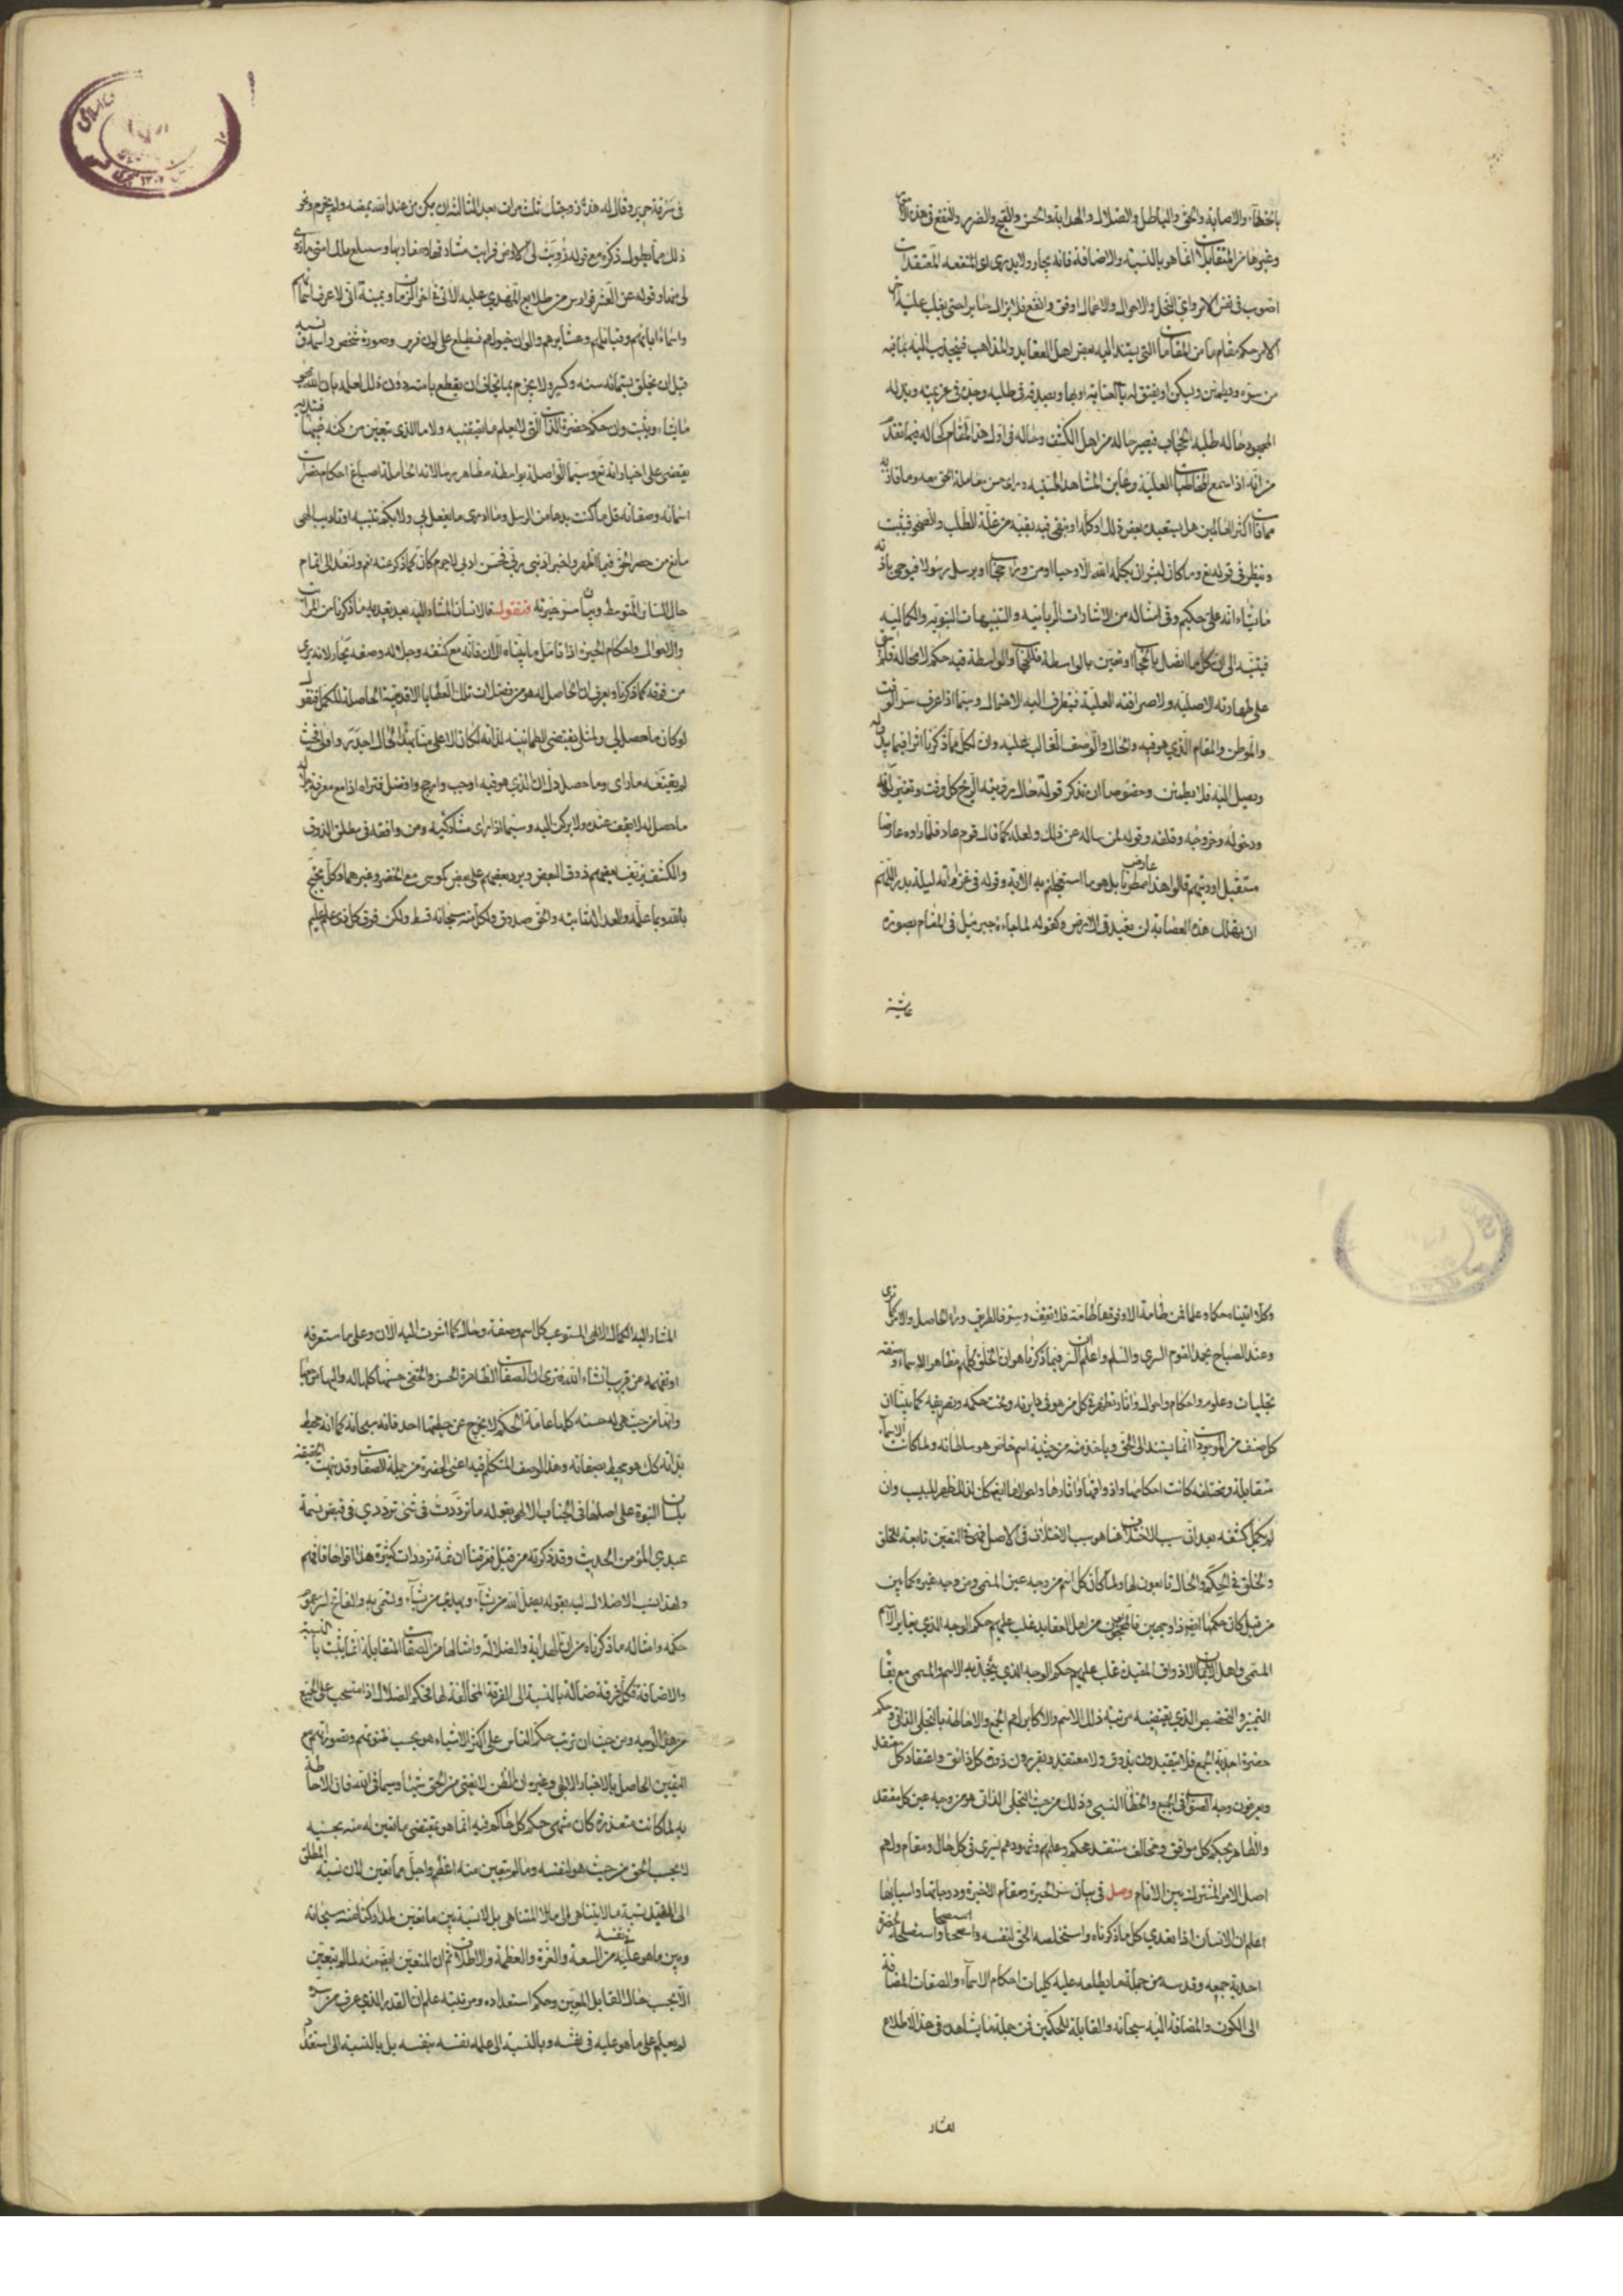 بالخطاء والاصابة والحق والباطل والضلال والهداية والحسن والقبح والضرر والنفع فى هذه
وغيرها من المتقابلات انما هو بالنسبة والاضافة فانه يحار ولا يدرى اى المنفعه المعتقدات
اصوب فى نفس الامر واى النحل والاحوال والاعمال اوفق وانفع فلا يزال حايرا حتى يغلب عليه اخر
الامر حكم مقام ما من المقامات التى يستند اليه بعض اهل العقايد والمذاهب فينجذب اليه بما فيه
من سره ويطمئن ويسكن او يفتق له بالعناية او بها وبصدقه فى طلبه وجده فى عزيمته وبذله
المجهود حاله طلبه الحجاب فيصير حاله من اهل الكشف وحاله فى اول هذا المقام كحاله فيما تقدم
من انه اذا سمع المخاطبات العلية وعاين المشاهد السنيه وراى حسن معاملة الحق معه وما فاز به
مما فات اكثر العالمين هل يستعبده بعض ذلك او كله او تبقى فيه بقية من غلة الطلب والصحو فيثبت
وينظر فى قوله تع وما كان لبشر ان يكلمه الله الا وحيا او من وراء حجاب او يرسل رسولا فيوحى باذنه
ما يشاء انه على حكيم وفى امثاله من الاشارات الربانيه والتنبيهات النبويه والكماليه
فيتنبه الى ان كل ما اتصل بالحجاب او تعين بالواسطة فللحجاب والواسطة فيه حكم لا محاله فلم يبق
على طهارته الاصليه ولا صرافته العلية فيتطرق اليه الاحتمال وسيما اذا عرف سر الوقت
والموطن والمقام الذى هو فيه والحال والوصف الغالب عليه وان لكل مما ذكرنا اثرا فيما يبدو له
ويصل اليه فلا يطمئن وخصوصا ان تذكر قوله حال رؤيته الريح كل وقت وتغير لونه
ودخوله وخروجه وقلقه وقوله لمن ساله عن ذلك ولعله كما قال قوم عاد فلما راوه عارضا
مستقبل اوديتهم قالوا هذا عارض ممطرنا بل هو ما استعجلتم به الاية وقوله فى غزاته ليلة بدر اللهم
ان تهلك هذه العصابة لن تعبد فى الارض وكقوله لما جاءه جبرئيل فى المنام بصورة
عايشة
فى سرقة حرير وقال له هذه زوجتك ثلث مرات بعد الثالثه ان يكن من عند الله يمضه ولم يجزم ونحو
ذلك مما يطول ذكره مع قوله زويت لى الارض فرايت مشارقها ومغاربها وسيبلغ ملك امتى ما زوى
لى منها وقوله عن العشر فوارس من طلايع المهدى عليه الاتى فى اخر الزمان ويمينة انى لاعرف اسماءهم
واسماء ابائهم وقبايلهم وعشايرهم والوان خيولهم فيطلع على لون فرس وصورة شخص واسمه ونسبه
قبل ان يخلق بستمائة سنه وكير ولا يجزم بما يخاف ان يقطع بامته دون ذلك لعلمه بان الله يمحو
ما يشاء ويثبت وان حكم حضرة الذات التى لا يعلم ما تقتضيه ولا ما الذى يتعين من كنه غيبها فتبديه
يقضى على اخباراته تع وسيما الواصلة بواسطة مظاهر رسالاته الحاملة اصباغ احكام حضرات
اسمائه وصفاته قل ما كنت بدعا من الرسل وما ادرى ما يفعل بى ولا بكم تنبيه او تاديب الهى
مانع من حصر الحق فيما اظهر واخبر ادبنى ربى فحسن ادبى لا جرم كان كما ذكر عنه نعم ولنعد الى اتمام
حال السائر المتوسط وبيان سر حيرته فنقول فالانسان المشار اليه بعد تعديه ما ذكرنا من المراتب
والاحوال واحكام الحيرة اذا تامل ما بيناه الان فانه مع كشفه وجلالة وصفه يحار لانه يرى
من فوقه كما ذكرنا ويعرف ان الحاصل له هو من فضلات تلك العطايا الاقدسية الحاصلة للكمل فيقول
لو كان ما حصل لى ولمثلى يقتضى الطمانينه لذاته لكان الاعلى منا بهذا الحال اجدر واولى فحيث
لم يقنعه ما راى وما حصل دل ان الذى هو فيه اوجب وارجح وافضل فتراه اذا مع معرفة جلاله
ما حصل له لا يقف عنده ولا يركن اليه وسيما اذا راى مشاركيه ومن وافقه فى مطلق الذوق
والكشف يزيف بعضهم ذوق البعض ويرد بعضهم على بعض كموسى مع الخضر وغيرهما وكل يحتج
بالله وبما علمه والعدالة ثابته والحق صدوق ولكل منه سبحانه قسط ولكن فوق كل ذى علم عليم
وكلا اتيناه حكما وعلما فمن طامة الا وفوقها طامة فلا تقف وسر فالطريق وراء الحاصل والامر كما ترى
وعند الصباح يحمد القوم السرى والسلم واعلم ان السر فيما ذكرناه هو ان الخلق كلهم مظاهر الاسماء والصفات
تجليات وعلوم واحكام واحوال واثار تظهر فى كل من هو فى دايرته وتحت حكمه وتصريفه كما بينا ان
كل صنف من الموجودات انما يستند الى الحق وياخذ منه من حيثية اسم خاص هو سلطانه ولما كانت الاسماء
متقابلة ومختلفة كانت احكامها واذواقها واثارها واحوالها ايضا كذلك فظهر للبيب وان
لم يكمل كشفه بعد ان سبب الاختلاف هنا هو سبب الاختلاف فى الاصل فهى فى التعين تابعة للخلق
والخلق فى الحكم والحال تابعون لها ولما كان كل اسم من وجه عين المسمى ومن وجه غيره كما بين
من قبل كان حكمها ايضا ذا وجهين فالمحجوبون من اهل العقايد غلب عليهم حكم الوجه الذى يغاير الاسم
المسمى واهل الاذواق المقيدة غلب عليهم حكم الوجه الذى يتحد به الاسم والمسمى مع بقاء
التميز والتخصيص الذى يقتضيه مرتبة ذلك الاسم والاكابر لهم الجمع والاحاطة بالتجلى الذاتى وحكم
حضرة احدية الجمع فلا يتقيدون بذوق ولا معتقد ويقررون ذوق كل ذائق واعتقاد كل معتقد
ويعرفون وجه الصواب فى الجميع والخطأ النسبى وذلك من حيث التجلى الذاتى هو من وجه عين كل معتقد
والظاهر بحكم كل موافق ومخالف منتقد فحكم علمهم وشهودهم يسرى فى كل حال ومقام ولهم
اصل الامر المشترك بين الانام وصل فى بيان سر الحيرة ومقام الاخيرة ودرجاتها واسبابها
اعلم ان الانسان اذا تعدى كل ما ذكرناه واستخلصه الحق لنفسه واستصلحه لحضرة
احدية جمعه وقدسه من جملة ما يطلعه عليه كليات احكام الاسماء والصفات المضافة
الى الكون والمضافة اليه سبحانه والقابلة للحكمين فمن جملة ما يشاهده فى هذا الاطلاع
المشار اليه الكمال الالهى المستوعب كل اسم وصفة وحال كما اشرت اليه الان وعلى ما ستعرفه
او تفهمه عن قريب انشاء الله فيرى ان الصفات الظاهرة الحسن والخفى حسنها كلها له واليها مرجعها
وانها من حيث هى له حسنه كلها عامة الحكم لا يخرج عن حيطتها احد فانه سبحانه كما انه محيط
بذاته كذلك هو محيط بصفاته وهذا الوصف المتكلم فيه اعنى الحيرة من جملة الصفات وقد نبهت الحقيقة
بلسان النبوة على اصلها فى الجناب الالهى بقوله ما ترددت فى شىء ترددى فى قبض نسمة
عبدى المؤمن الحديث وقد ذكرته من قبل فعرفنا ان ثمة ترددات كثيرة هذا اقواها فافهم
ولهذا نسب الاضلال اليه بقوله يضل الله من يشاء ويهدى من يشاء وتسمى به والفاتح لسر عموم
حكمه وامثاله ما ذكرناه من ان الهداية والضلالة وامثالها من الصفات المتقابلة انما يثبت بالنسبة
والاضافة فكل فرقة ضالة بالنسبة الى الفرقة المخالفة لها فحكم الضلال اذا منسحب على الجميع
من هذا الوجه ومن حيث ان ترتب حكم الناس على اكثر الاشياء هو بحسب ظنونهم وتصوراتهم مع
اليقين الحاصل بالاخبار الالهى وغيره ان الظن لا يغنى من الحق شيئا وسيما فى الله فان الاحاطة
به لما كانت متعذرة كان منتهى حكم كل حاكم فيه انما هو بمقتضى ما تعين له منه بحسبه
لا بحسب الحق من حيث هو لنفسه وما لم يتعين منه اعظم واجل مما تعين لان نسبة المطلق
الى المقيد نسبة ما لا يتناهى الى المتناهى بل لا نسبة بين ما تعين لمداركنا منه سبحانه
وبين ما هو عليه فى نفسه من السعة والعزة والعظمة والاطلاق ثم ان المتعين ايضا منه لما لم يتعين
الا بحسب حال القابل المعين وحكم استعداده ومرتبته علم ان القدر الذى عرف من سره
لم يعلم على ما هو عليه فى نفسه وبالنسبة الى علمه نفسه بنفسه بل بالنسبة الى استعداد